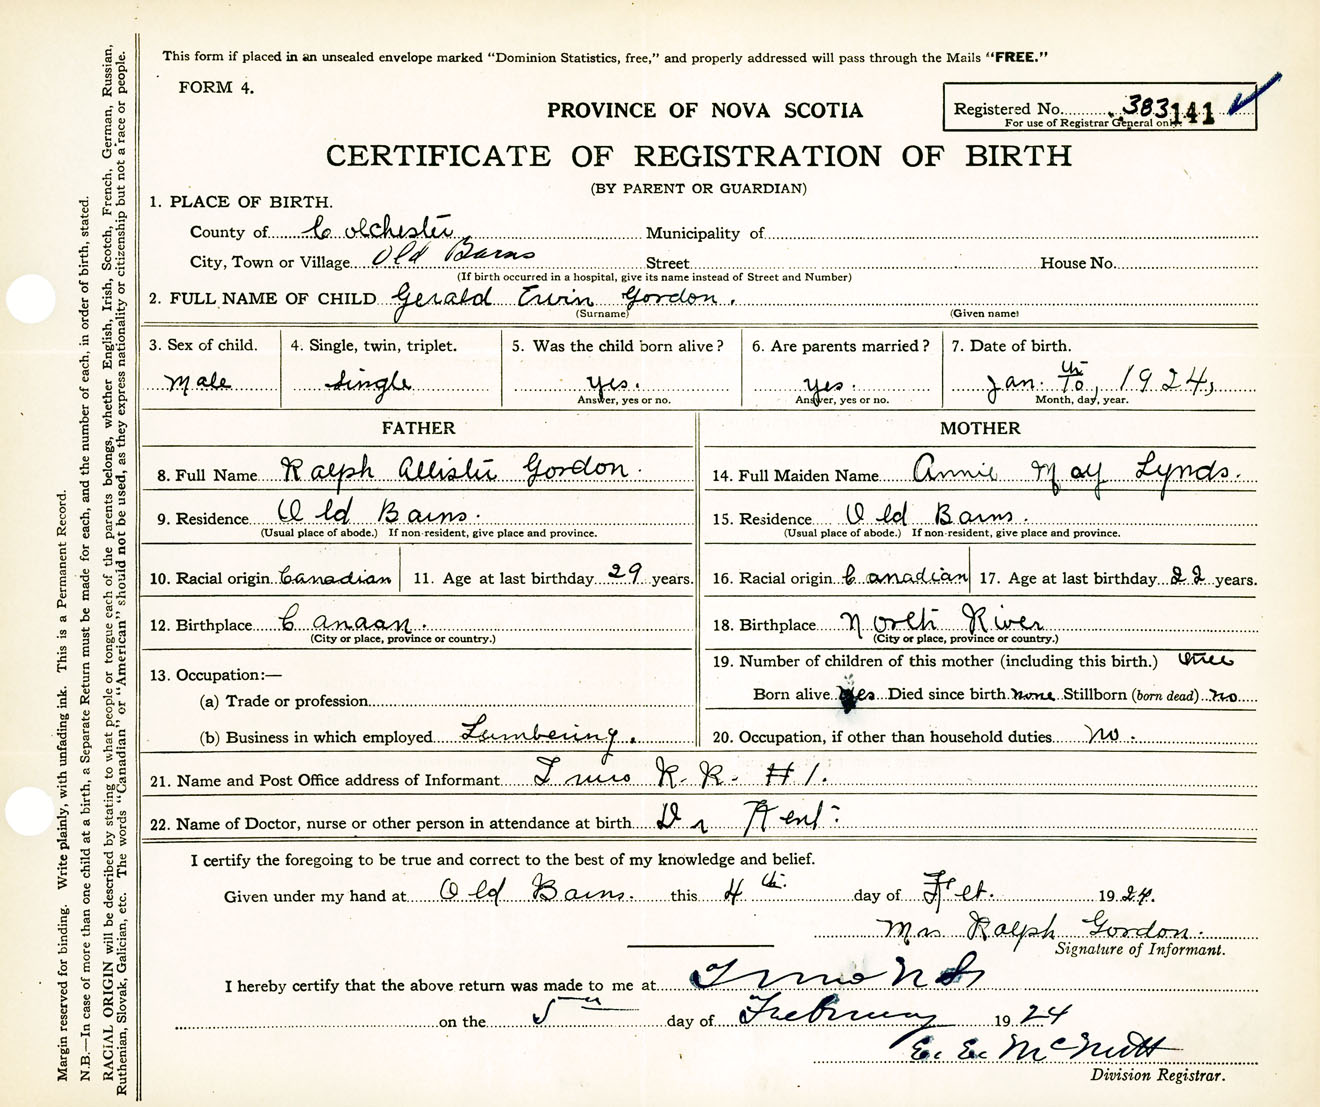 This form if placed in an unsealed envelope marked "Dominion Statistics, free," and properly addressed will pass through the Mails "FREE."
FORM 4.
PROVINCE OF NOVA SCOTIA
Registered No. 383141
For use of Registrar General only.
CERTIFICATE OF REGISTRATION OF BIRTH
(BY PARENT OR GUARDIAN)
1. PLACE OF BIRTH.
County of Colchester Municipality of
City, Town or Village Old Barns Street House No.
(If birth occurred in a hospital, give its name instead of Street and Number)
2. FULL NAME OF CHILD Gerald Ervin Gordon.
(Surname) (Given name)
3. Sex of child. 4. Single, twin, triplet. 5. Was the child born alive? 6. Are parents married? 7. Date of birth.
Male Single yes. yes. Jan. 10th, 1924,
Answer, yes or no. Answer, yes or no. Month, day, year.
FATHER MOTHER
8. Full Name Ralph Allister Gordon. 14. Full Maiden Name Annie May Lynds.
9. Residence Old Barns. 15. Residence Old Barns.
(Usual place of abode.) If non-resident, give place and province. (Usual place of abode.) If non-resident, give place and province.
10. Racial origin Canadian 11. Age at last birthday 29 years. 16. Racial origin Canadian 17. Age at last birthday 22 years.
12. Birthplace Canaan. 18. Birthplace North River
(City or place, province or country.) (City or place, province or country.)
13. Occupation:— 19. Number of children of this mother (including this birth.) three
(a) Trade or profession Born alive yes Died since birth none Stillborn (born dead) no
(b) Business in which employed Lumbering. 20. Occupation, if other than household duties no.
21. Name and Post Office address of Informant Truro R. R. #1.
22. Name of Doctor, nurse or other person in attendance at birth Dr Kent.
I certify the foregoing to be true and correct to the best of my knowledge and belief.
Given under my hand at Old Barns. this 4th day of Feb. 1924.
Mrs Ralph Gordon.
Signature of Informant.
I hereby certify that the above return was made to me at Truro N S
on the 5th day of February 1924
E. E. McNutt
Division Registrar.
Margin reserved for binding. Write plainly, with unfading ink. This is a Permanent Record.
N.B.—In case of more than one child at a birth, a Separate Return must be made for each, and the number of each, in order of birth, stated.
RACIAL ORIGIN will be described by stating to what people or tongue each of the parents belongs, whether English, Irish, Scotch, French, German, Russian,
Ruthenian, Slovak, Galician, etc. The words "Canadian" or "American" should not be used, as they express nationality or citizenship but not a race or people.